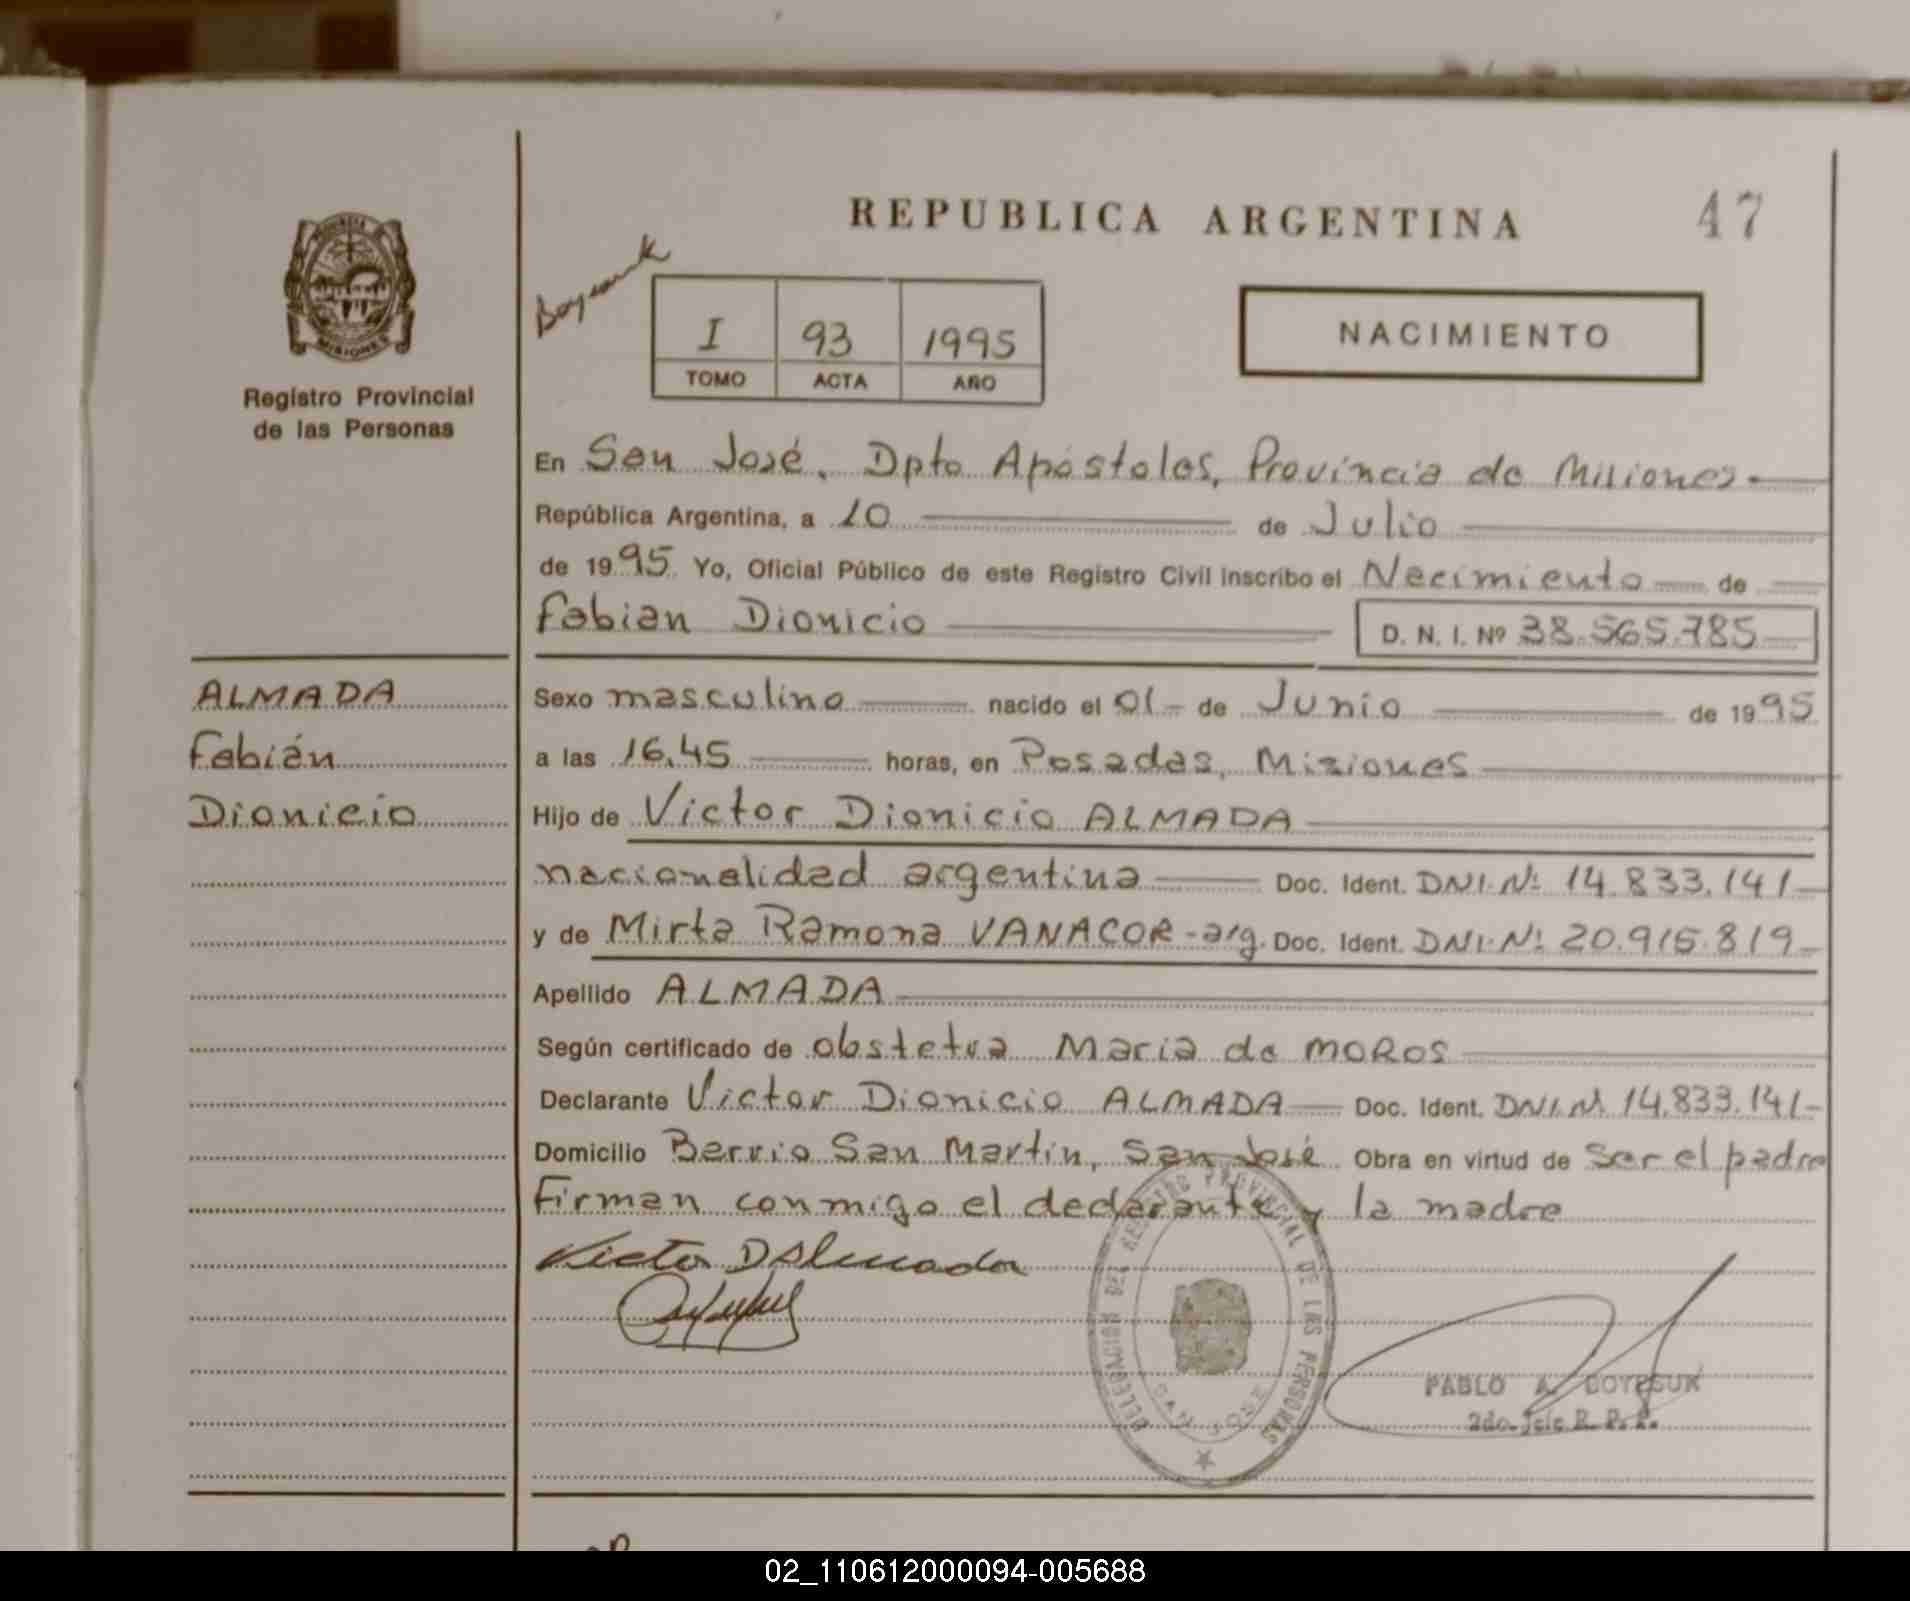 REPUBLICA ARGENTINA
47
PROVINCIA DE
MISIONES
Registro Provincial
de las Personas
Boyesuk
I 93 1995
TOMO ACTA AÑO
NACIMIENTO
En San José, Dpto Apóstoles, Provincia de Misiones
República Argentina, a 10 de Julio
de 1995 Yo, Oficial Público de este Registro Civil inscribo el Nacimiento de
Fabian Dionicio D. N. I. Nº 38.565.785
ALMADA
Fabián
Dionicio
Sexo masculino nacido el 01- de Junio de 1995
a las 16.45 horas, en Posadas, Misiones
Hijo de Victor Dionicio ALMADA
nacionalidad argentina Doc. Ident. DNI.Nº 14.833.141-
y de Mirta Ramona VANACOR-arg. Doc. Ident. DNI.Nº 20.915.819-
Apellido ALMADA
Según certificado de obstetra Maria de MOROS
Declarante Victor Dionicio ALMADA Doc. Ident. DNI.Nº 14.833.141-
Domicilio Barrio San Martin, San José Obra en virtud de ser el padre
Firman conmigo el declarante y la madre
Victor D Almada
DELEGACION DEL REGISTRO PROVINCIAL DE LAS PERSONAS
SAN JOSE
PABLO A. BOYESUK
2do. Jefe R. P. P.
02_110612000094-005688